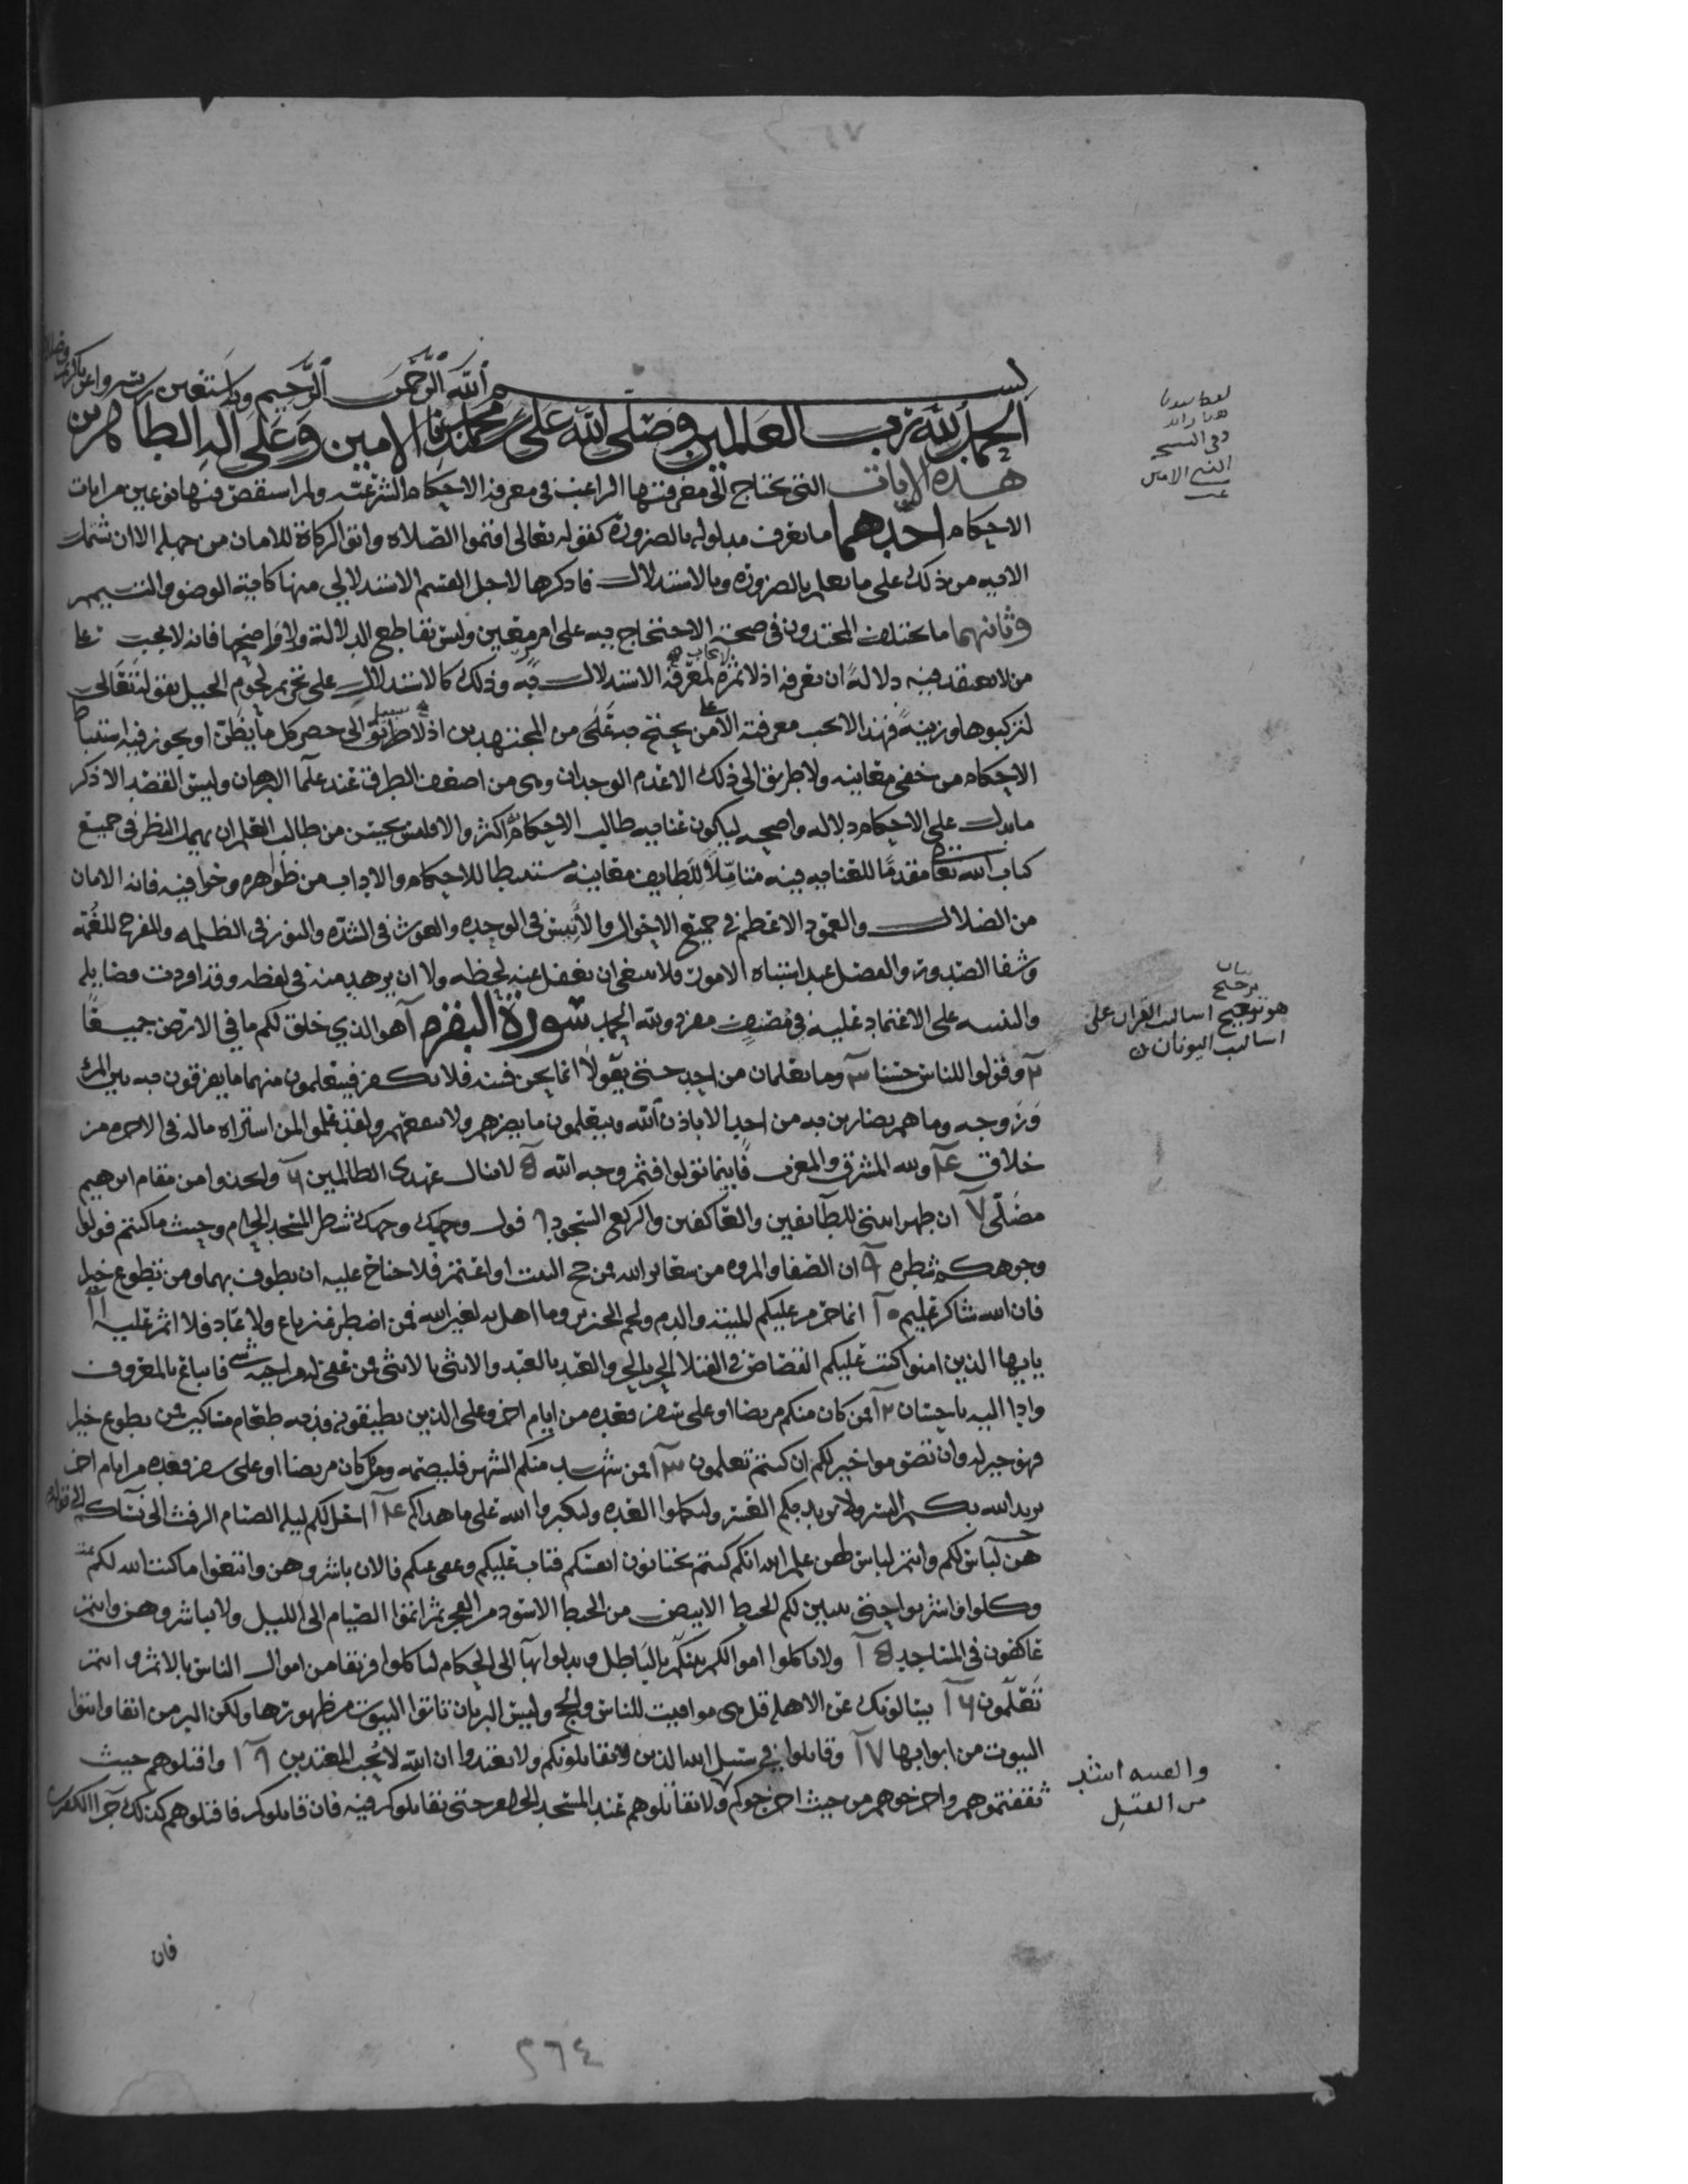 بسم الله الرحمن الرحيم وبه نستعين رب يسر واعن يا كريم
الحمد لله رب العالمين وصلى الله على محمد الامين وعلى اله الطاهرين
هذه الايات التي يحتاج الى معرفتها الراغب في معرفة الاحكام الشرعية ولم استقص فيها نوعين من ايات
الاحكام احدهما ما يعرف مدلوله بالضرورة كقوله تعالى اقيموا الصلاه واتوا الزكاة للامان من جهله الا ان تشتمل
الايه من ذلك على ما يعلم بالضروره وبالاستدلال فاذكرها لاجل القسم الاستدلالي منها كاية الوضو والتيمم
وثانيهما ما يختلف المجتهدون في صحة الاحتجاج به على امر معين وليس بقاطع الدلالة ولا واضحها فانه لا يجب على
من لا يعتقد فيه دلالة ان يعرفه اذ لا ثمرة لمعرفة الاستدلال به وذلك كالاستدلال على تحريم لحوم الخيل بقوله تعالى
لتركبوها وزينة فهذا لا تجب معرفته الا على من يحتج به من المجتهدين اذ لا طريق الى حصر كل ما يظن او يجوز فيه استنباط
الاحكام من خفي معانيه ولا طريق الى ذلك الا عدم الوجدان وهي من اضعف الطرق عند علما البرهان وليس القصد الا ذكر
ما يدل على الاحكام دلاله واضحه ليكون عنايه طالب الاحكام به اكثر والا فليس يحسن من طالب العلم ان يهمل النظر في جميع
كتاب الله تعالى مقدما للعنايه فيه متاملا للطايف معانيه مستنبطا للاحكام والاداب من ظواهره وخوافيه فانه الامان
من الضلال والعمود الاعظم في جميع الاحوال والانيس في الوحده والغوث في الشده والنور في الظلمه والمفرح للغمه
وشفا الصدور والفصل عند اشتباه الامور فلا ينبغي ان يغفل عنه لحظه ولا ان يزهد منه في لفظه وقد افردت فضايله
والتنبيه على الاعتماد عليه في مصنف مفرد ولله الحمد سورة البقره ١ هو الذي خلق لكم ما في الارض جميعا
٢ وقولوا للناس حسنا ٣ وما يعلمان من احد حتى يقولا انما نحن فتنه فلا تكفر فيتعلمون منهما ما يفرقون به بين المرء
وزوجه وما هم بضارين به من احد الا باذن الله ويتعلمون ما يضرهم ولا ينفعهم ولقد علموا لمن اشتراه ماله في الاخره من
خلاق ٤ ولله المشرق والمغرب فاينما تولوا فثم وجه الله ٥ لا ينال عهدي الظالمين ٦ واتخذوا من مقام ابرهيم
مصلى ٧ ان طهرا بيتي للطائفين والعاكفين والركع السجود ٨ فول وجهك شطر المسجد الحرام وحيث ما كنتم فولوا
وجوهكم شطره ٩ ان الصفا والمروه من شعاير الله فمن حج البيت او اعتمر فلا جناح عليه ان يطوف بهما ومن تطوع خيرا
فان الله شاكر عليم ١٠ انما حرم عليكم الميتة والدم ولحم الخنزير وما اهل به لغير الله فمن اضطر غير باغ ولا عاد فلا اثم عليه ١١
يايها الذين امنوا كتب عليكم القصاص في القتلا الحر بالحر والعبد بالعبد والانثى بالانثى فمن عفي له من اخيه شي فاتباع بالمعروف
وادا اليه باحسان ١٢ فمن كان منكم مريضا او على سفر فعده من ايام اخر وعلى الذين يطيقونه فديه طعام مساكين فمن تطوع خيرا
فهو خير له وان تصوموا خير لكم ان كنتم تعلمون ١٣ فمن شهد منكم الشهر فليصمه ومن كان مريضا او على سفر فعده من ايام اخر
يريد الله بكم اليسر ولا يريد بكم العسر ولتكملوا العده ولتكبروا الله على ما هداكم ١٤ احل لكم ليله الصيام الرفث الى نسائكم
هن لباس لكم وانتم لباس لهن علم الله انكم كنتم تختانون انفسكم فتاب عليكم وعفى عنكم فالان باشروهن وابتغوا ما كتب الله لكم
وكلوا واشربوا حتى يتبين لكم الخيط الابيض من الخيط الاسود من الفجر ثم اتموا الصيام الى الليل ولا تباشروهن وانتم
عاكفون في المساجد ١٥ ولا تاكلوا اموالكم بينكم بالباطل وتدلوا بها الى الحكام لتاكلوا فريقا من اموال الناس بالاثم وانتم
تعلمون ١٦ يسالونك عن الاهلة قل هي مواقيت للناس والحج وليس البر بان تاتوا البيوت من ظهورها ولكن البر من اتقا واتوا
البيوت من ابوابها ١٧ وقاتلوا في سبيل الله الذين يقاتلونكم ولا تعتدوا ان الله لا يحب المعتدين واقتلوهم حيث
ثقفتموهم واخرجوهم من حيث اخرجوكم ولا تقاتلوهم عند المسجد الحرام حتى يقاتلوكم فيه فان قاتلوكم فاقتلوهم كذلك جزا الكفرين
هو ترجيح اساليب القران على
اساليب اليونان
والفتنه اشد
من القتل
فان
٢٦٤